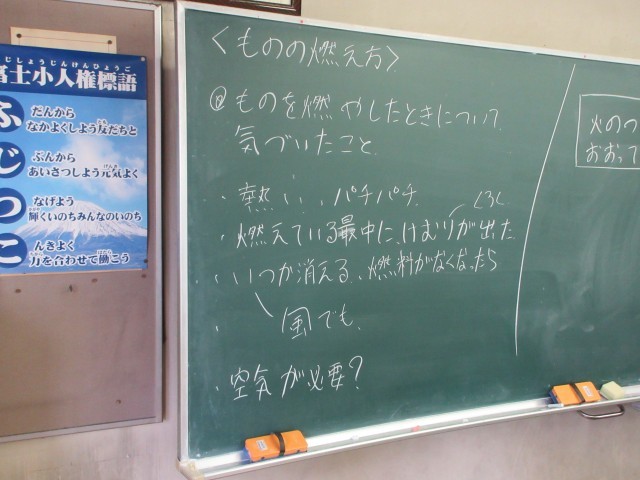 じしょうじんけんひょうご
富士小人権標語
ふ
だんから
なかよくしよう友だちと
じ
ぶんから
あいさつしよう元気よく
つ
なげよう
輝くいのちみんなのいのち
こ
んきよく
力を合わせて働こう
<ものの燃え方>
ものを燃やしたときについて
気づいたこと
・熱い、パチパチ
くろく
・燃えている最中に、けむりが出た
・いつか消える、燃料がなくなったら
・風でも、
・空気が必要?
火のつ
おおって